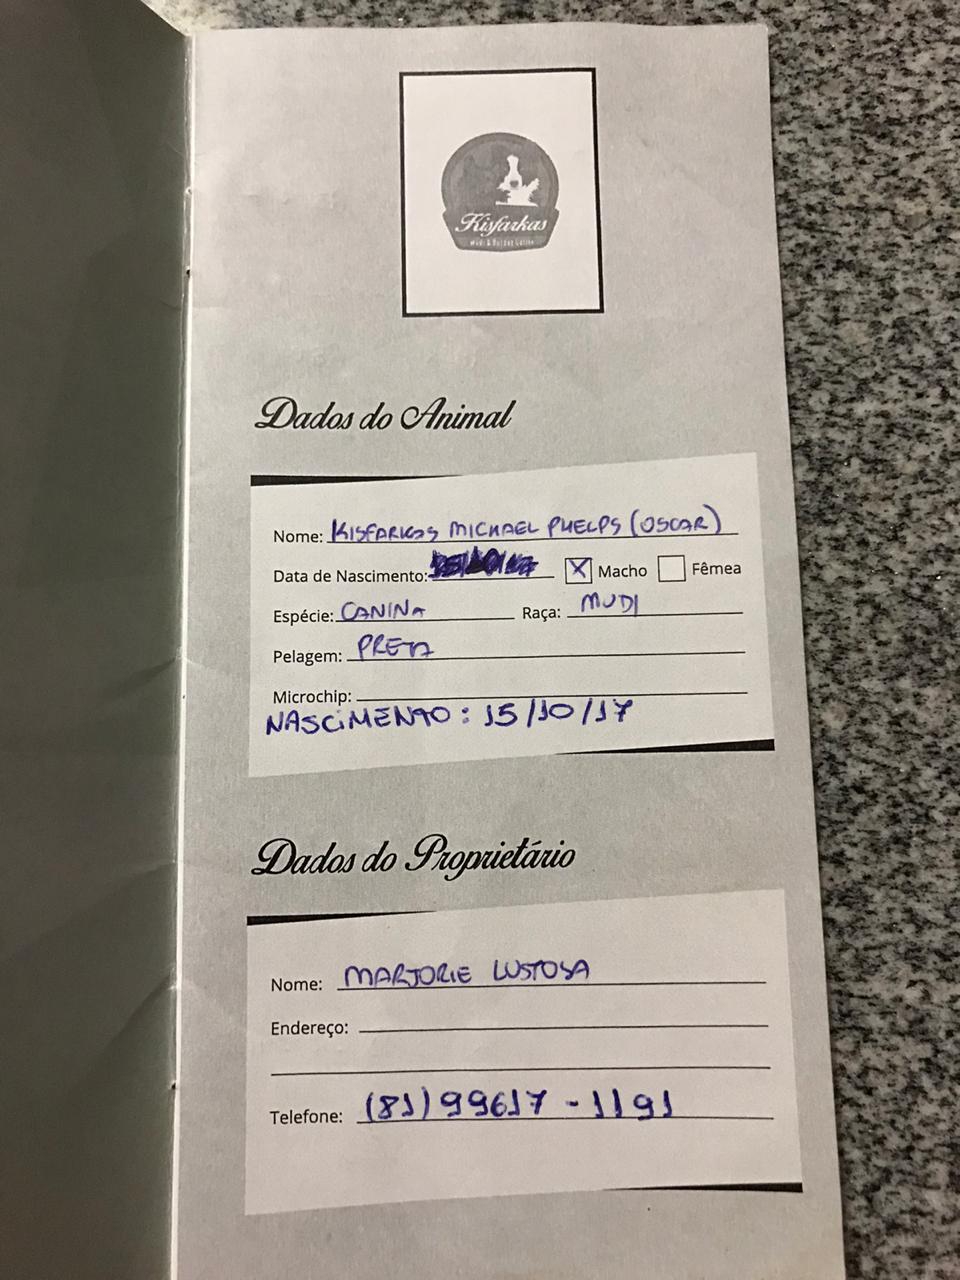 Kisfarkas
Dados do Animal
Nome: KISFARKAS MICHAEL PHELPS (OSCAR)
Data de Nascimento: X Macho Fêmea
Espécie: CANINA Raça: MUDI
Pelagem: PRETA
Microchip:
NASCIMENTO: 15/10/17
Dados do Proprietário
Nome: MARJORIE LUSTOSA
Endereço:
Telefone: (81) 99617-1191